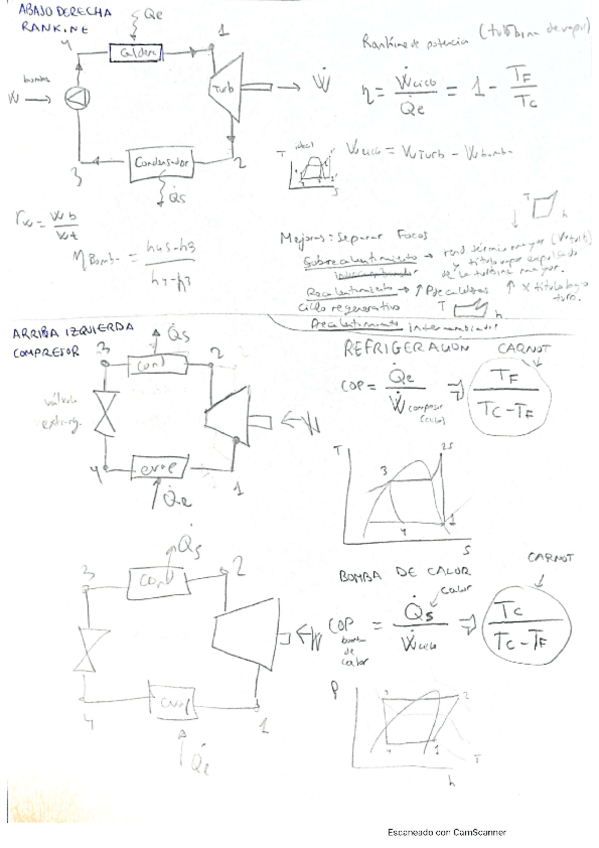 ABAJO DERECHA
RANKINE
Q̇e
4
Caldera
1
bomba
Ẇ
Turb
Ẇ
3
Condensador
2
Q̇s
Rankine de potencia (turbina de vapor)
η = Ẇciclo / Q̇e = 1 - TF / TC
T ideal
S
Ẇciclo = Ẇturb - Ẇbomb
rw = Ẇb / Ẇt
ηBomb = h4s-h3 / h4-h3
Mejoras: Separar Focos
Sobrecalentamiento → rend térmico mayor
y titulo vapor expulsado
de la turbina mayor.
Recalentamiento → ↑ Pcaldera ↑ X titulo
ciclo regenerativo
T
h
Precalentamiento intercambiador
ARRIBA IZQUIERDA
COMPRESOR
Q̇s
3
cond
2
válvula
Ẇ
4
evap
1
Q̇e
REFRIGERACION
CARNOT
COP = Q̇e / Ẇcompresor (ciclo) ⇒ TF / TC - TF
T
3
2s
4
1
S
Q̇s
3
cond
2
Ẇ
4
evap
1
Q̇e
BOMBA DE CALOR
calor
CARNOT
COP bomba de calor = Q̇s / Ẇciclo ⇒ TC / TC - TF
P
3
2
4
1
T
h
Escaneado con CamScanner